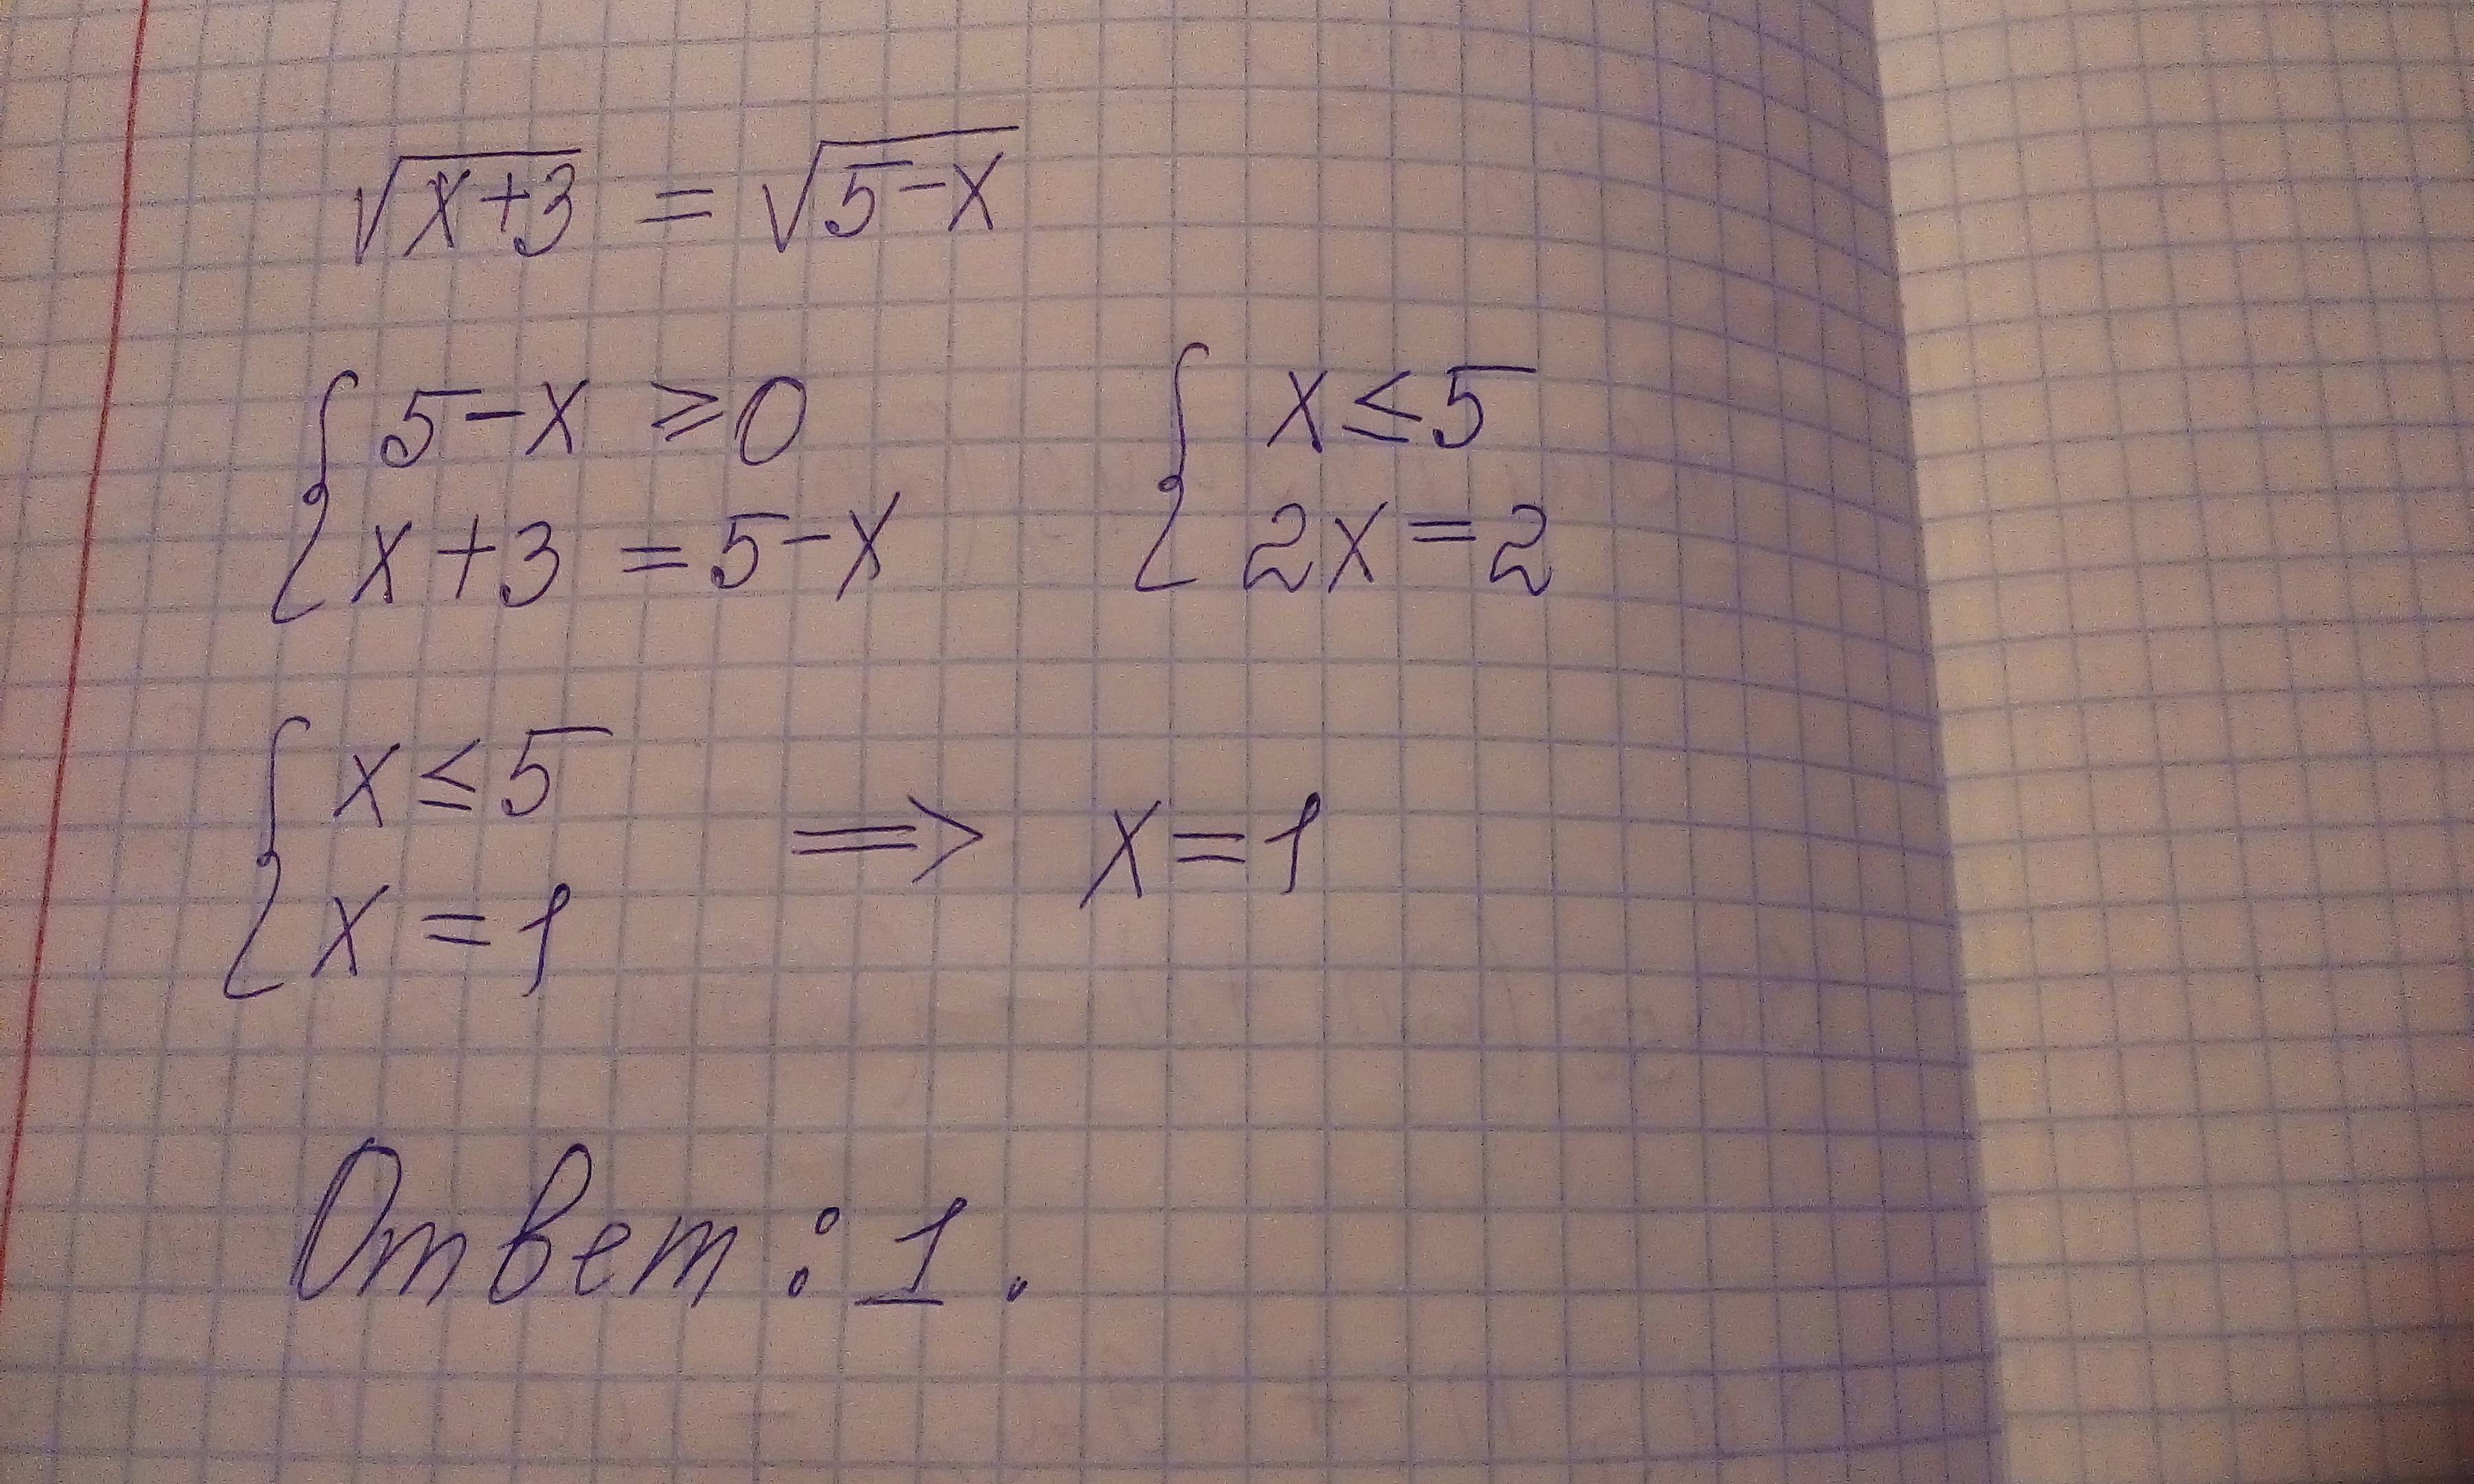 √(x+3) = √(5-x)
{ 5-x ≥ 0 { x ≤ 5
{ x+3 = 5-x { 2x = 2
{ x ≤ 5
{ x = 1 => x = 1
Ответ: 1.